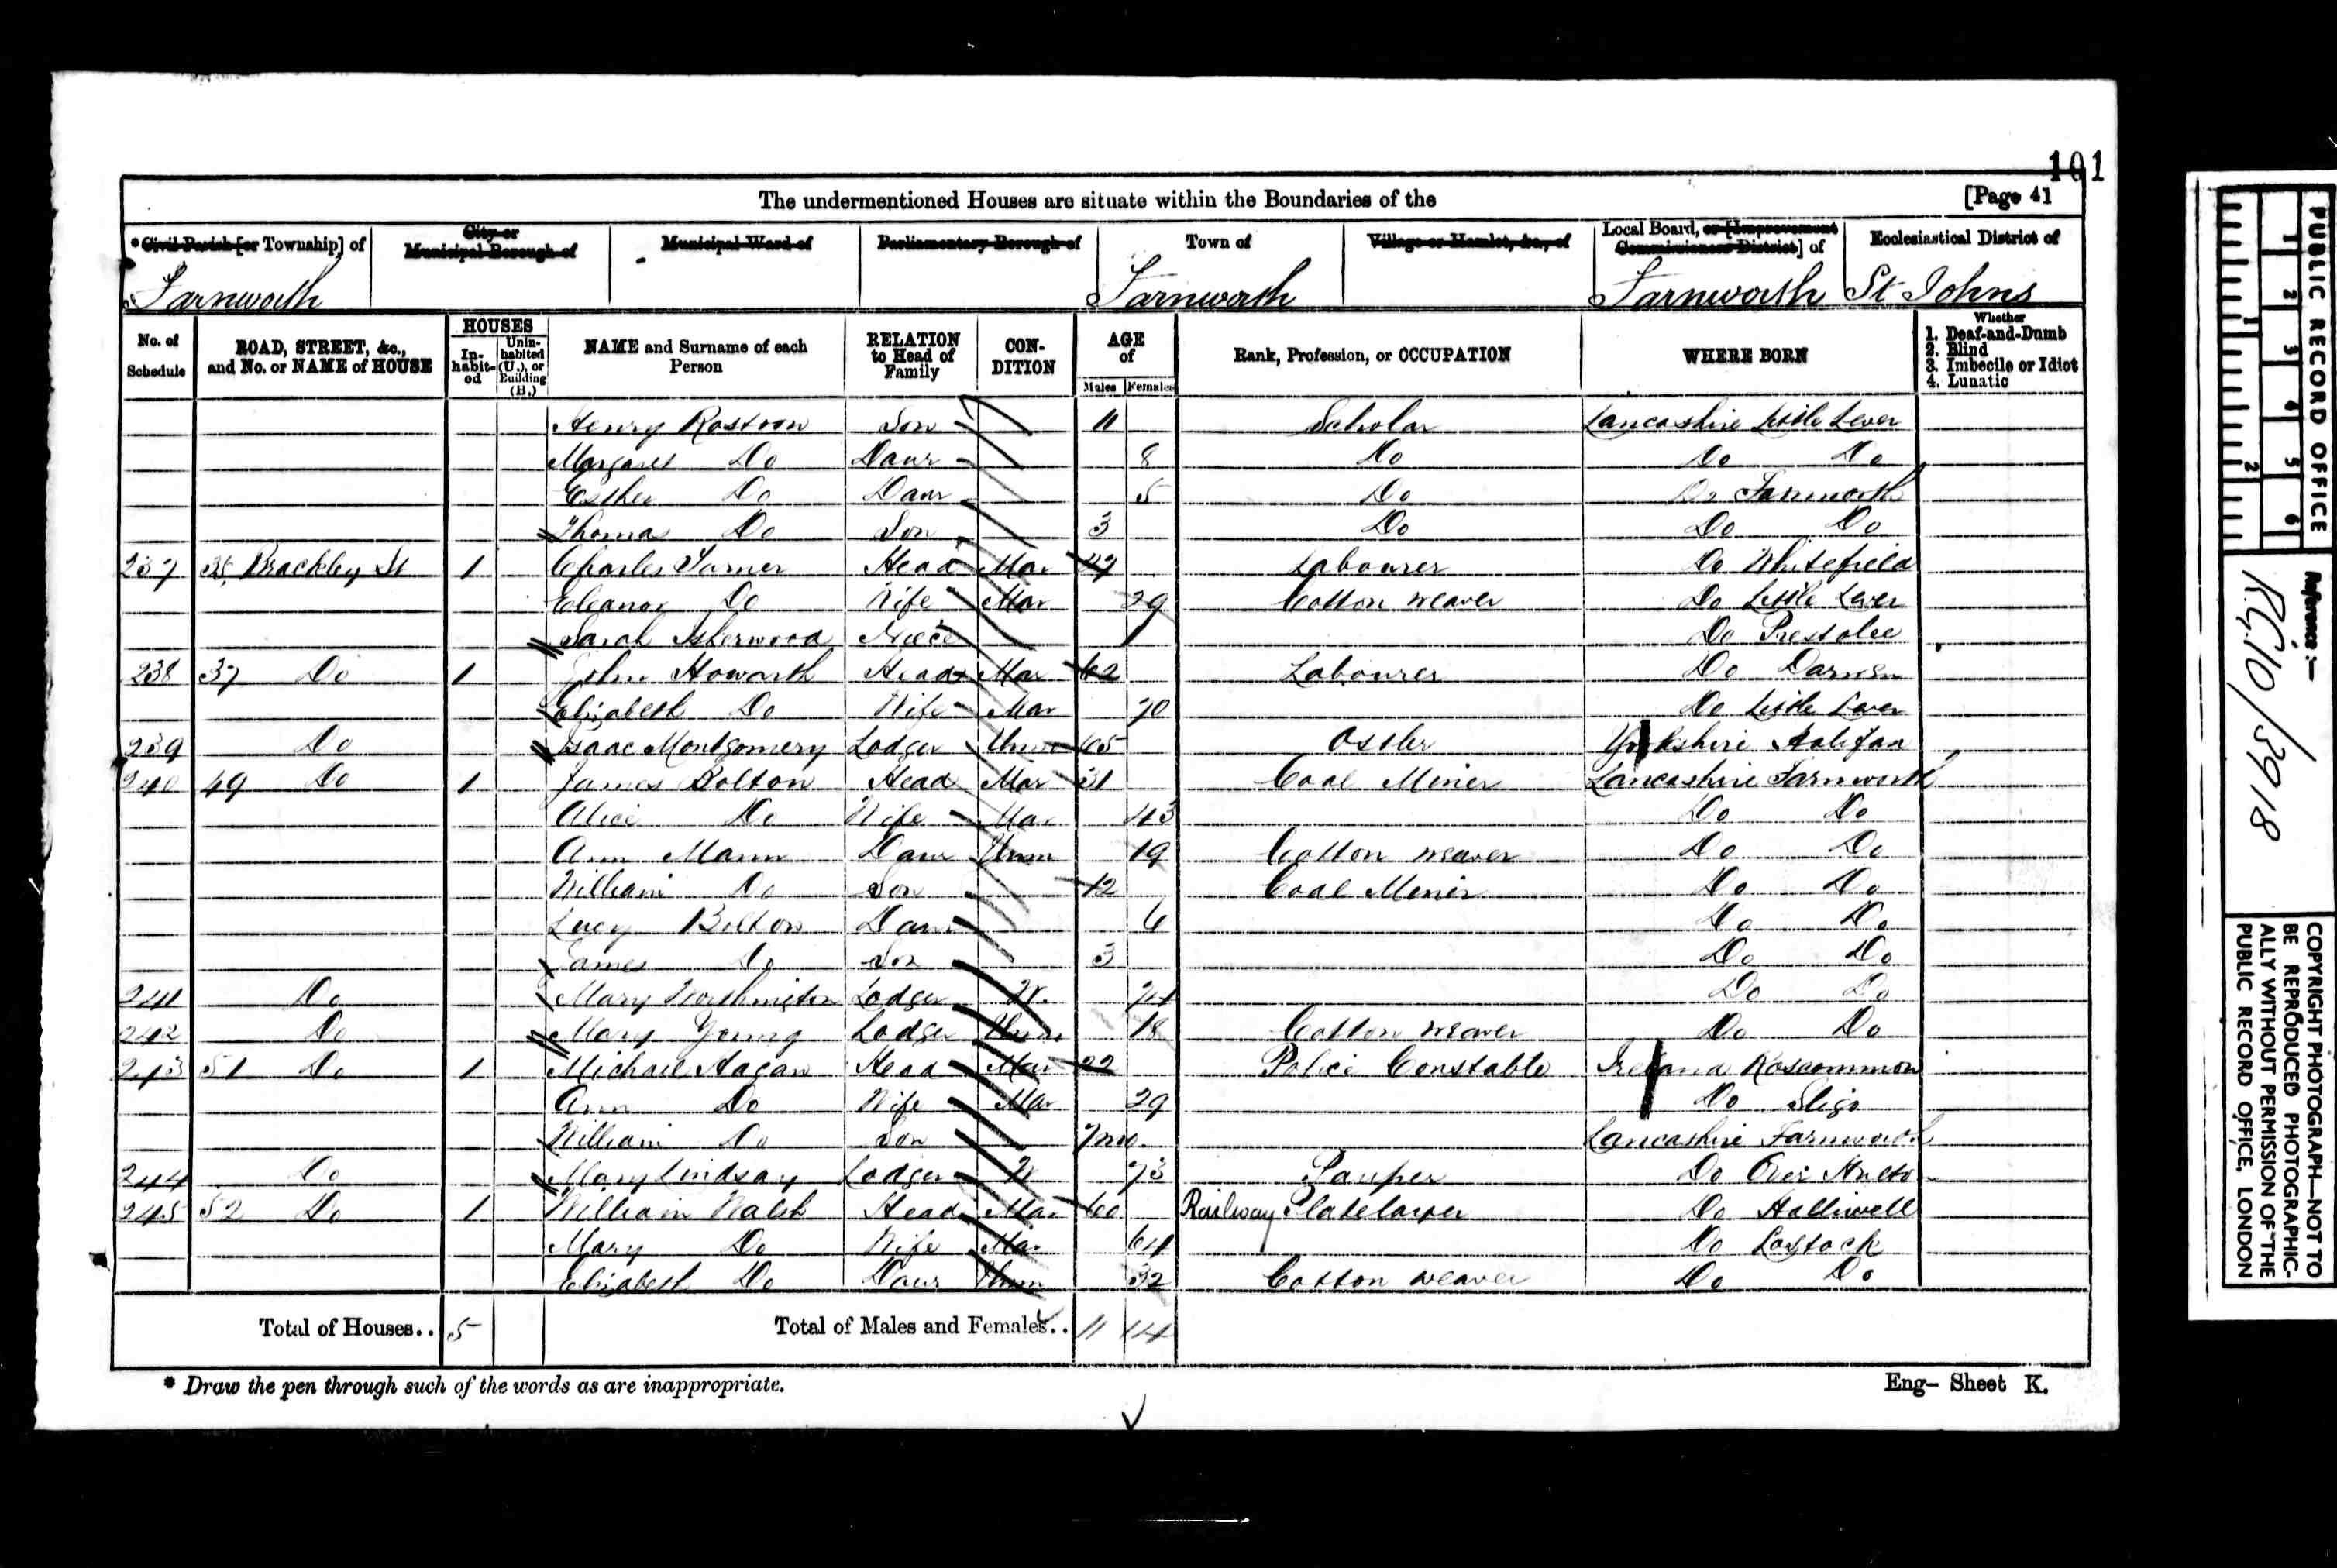 101
The undermentioned Houses are situate within the Boundaries of the [Page 41
* Civil Parish [or Township] of
City or Municipal Borough of
Municipal Ward of
Parliamentary Borough of
Town of
Village or Hamlet, &c., of
Local Board, or [Improvement Commissioners District] of
Ecclesiastical District of
Farnworth Farnworth Farnworth St Johns
No. of Schedule
ROAD, STREET, &c., and No. or NAME of HOUSE
HOUSES
In-habit-ed
Unin-habited (U.), or Building (B.)
NAME and Surname of each Person
RELATION to Head of Family
CON-DITION
AGE of
Males Females
Rank, Profession, or OCCUPATION
WHERE BORN
Whether
1. Deaf-and-Dumb
2. Blind
3. Imbecile or Idiot
4. Lunatic
Henry Rostron Son 11 Scholar Lancashire Little Lever
Margaret Do Daur 8 Do Do Do
Esther Do Daur 5 Do Do Farnworth
Thomas Do Son 3 Do Do Do
237 Brackley St 1 Charles Head Mar Labourer Do Whitefield
Eleanor Do Wife Mar 29 Cotton weaver Do Little Lever
Sarah Isherwood Niece 1 Do Prestolee
238 37 Do 1 John Howarth Head Mar 62 Labourer Do Darwen
Elizabeth Do Wife Mar 70 Do Little Lever
239 Do Isaac Montgomery Lodger Unm 65 Ostler Yorkshire Halifax
240 49 Do 1 James Bolton Head Mar 31 Coal Miner Lancashire Farnworth
Alice Do Wife Mar 43 Do Do
Ann Mann Daur Unm 19 Cotton weaver Do Do
William Do Son 12 Coal Miner Do Do
Lucy Bolton Daur 6 Do Do
James Do Son 3 Do Do
241 Do Mary Worthington Lodger W. 74 Do Do
242 Do Mary Young Lodger Unm 18 Cotton weaver Do Do
243 51 Do 1 Michael Hagan Head Mar 22 Police Constable Ireland Roscommon
Ann Do Wife Mar 29 Do Sligo
William Do Son 7mo. Lancashire Farnworth
244 Do Mary Lindsay Lodger W 73 Pauper Do Over Hulton
245 52 Do 1 William Walsh Head Mar 60 Railway Platelayer Do Halliwell
Mary Do Wife Mar 64 Do Lostock
Elizabeth Do Daur Unm 32 Cotton weaver Do Do
Total of Houses.. 5 Total of Males and Females.. 11 14
* Draw the pen through such of the words as are inappropriate.
Eng— Sheet K.
PUBLIC RECORD OFFICE
1 2 3 4 5 6
1 2
Reference :—
R.G.10/3918
COPYRIGHT PHOTOGRAPH—NOT TO
BE REPRODUCED PHOTOGRAPHIC-
ALLY WITHOUT PERMISSION OF THE
PUBLIC RECORD OFFICE, LONDON